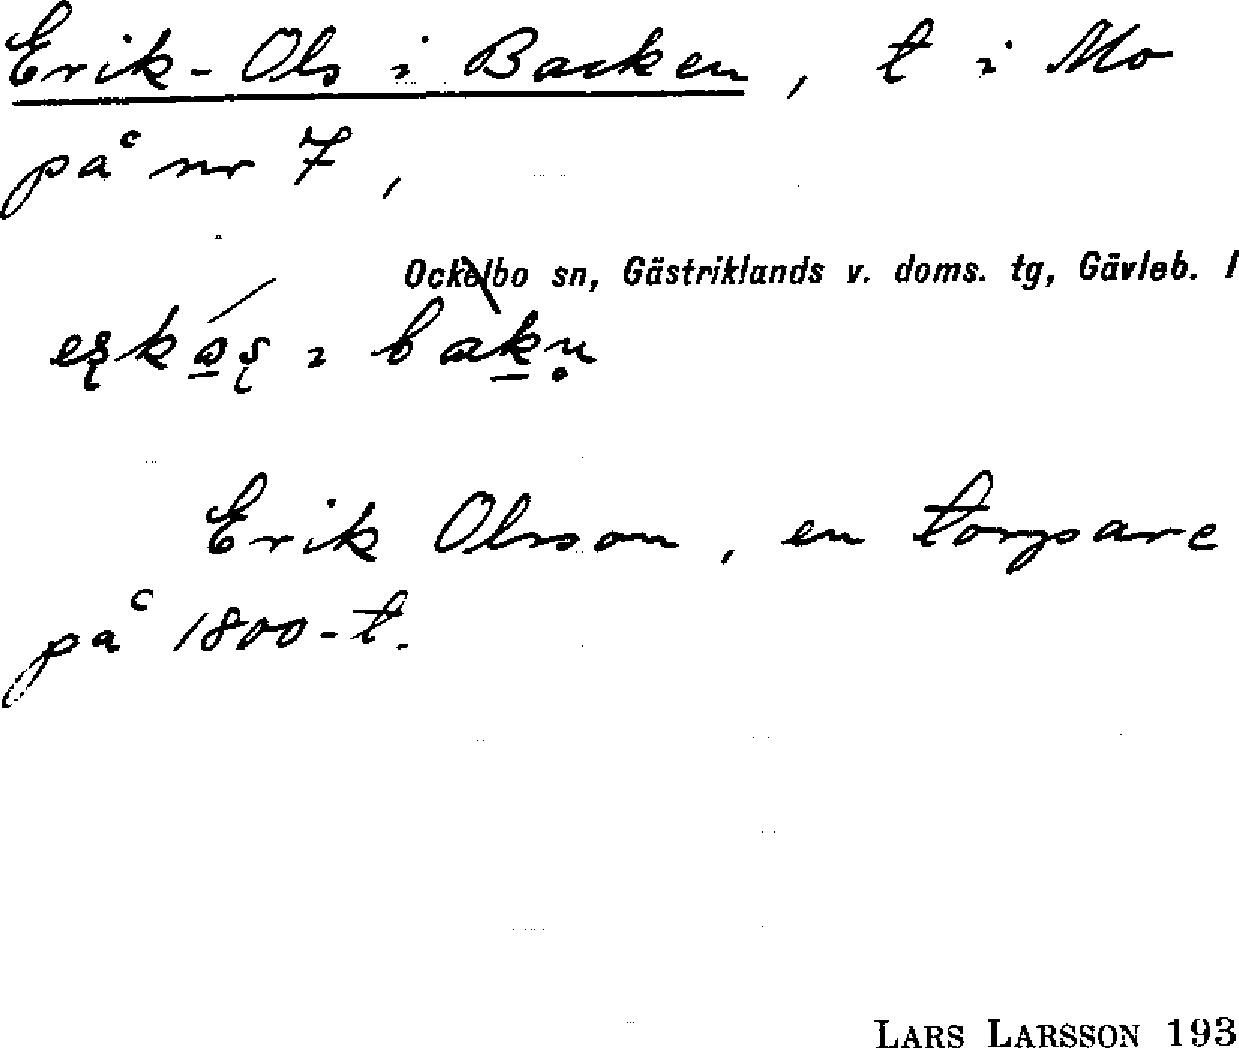 Erik-Ols i Backen, t i Mo
på nr 7,
Ockelbo sn, Gästriklands v. doms. tg, Gävleb. l
Erik Olsson, en torpare
på 1800-t.
LARS LARSSON 193